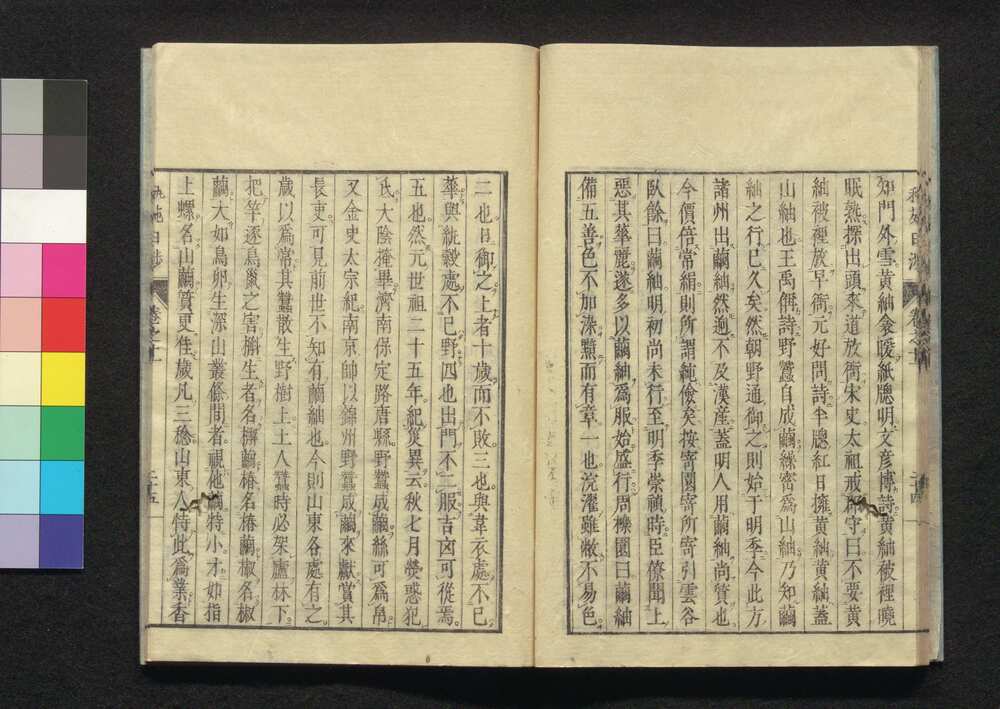 知門外雪黄紬衾暖紙牕明文彦博詩黄紬被裡曉
眠熟探出頭來道放衙宋史太祖戒縣守曰不要黄
紬被裡放早衙元好問詩半牕紅日擁黄紬黄紬蓋
山紬也王禹偁詩野蠶自成繭繰密爲山紬乃知繭
紬之行已久矣然朝野通御之則始于明季今此方
諸州出繭紬然逈不及漢産蓋明人用繭紬尚質也
今價倍常絹則所謂純儉矣按寄園寄所寄引雲谷
臥餘曰繭紬明初尚未行至明季崇禎時臣僚聞上
惡其華麗遂多以繭紬爲服始盛行周櫟園曰繭紬
備五善色不加染黯而有章一也浣濯雖敝不易色
二也日御之上者十歲而不敗三也與韋衣處不已
華與紈縠處不已野四也出門不二服吉凶可從焉
五也然元世祖二十五年紀災異云秋七月熒惑犯
氐大陰掩畢濟南保定路唐縣野蠶成繭絲可爲帛
又金史太宗紀南京帥以錦州野蠶成繭來獻賞其
長吏可見前世不知有繭紬也今則山東各處有之
歲以爲常其蠶散生野樹上土人蠶時必架廬林下
把竿逐鳥鼠之害槲生者名槲繭椿名椿繭椒名椒
繭大如鳥卵生深山叢條間者視他繭特小才如指
上螺名山繭質更佳歲凡三稔山東人恃此爲業香